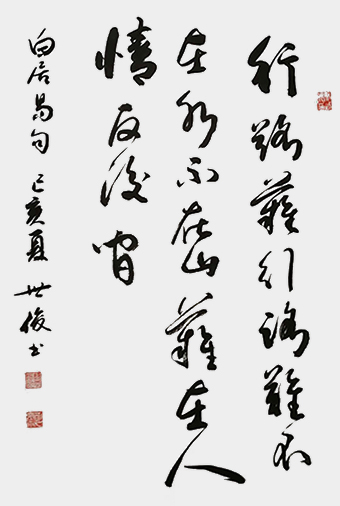 行路難行路難不
在水不在山難在人
情反復間
白居易句 己亥夏 世俊書